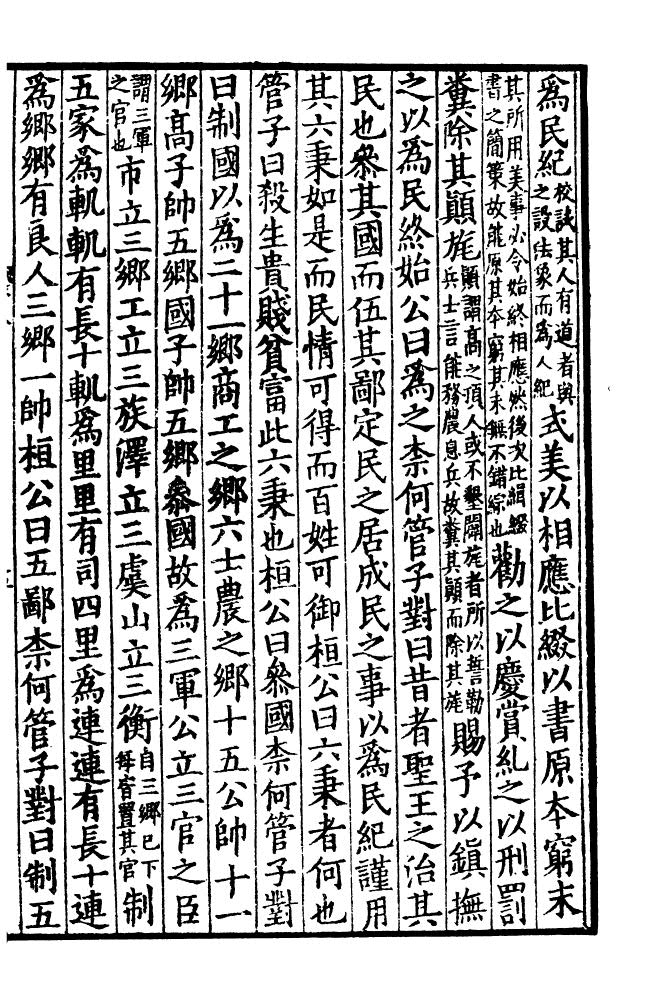 為民紀校試其人有道者與之設法象而為人紀式美以相應比綴以書原本窮末
其所用美事必令始終相應然後次比緝綴書之簡策故能原其本窮其末無不錯綜也勸之以慶賞糺之以刑罰
糞除其顛旄顛謂高之頂人或不墾闢旄者所以誓勒兵士言能務農息兵故糞其顛而除其旄賜予以鎮撫
之以為民終始公曰為之柰何管子對曰昔者聖王之治其
民也叅其國而伍其鄙定民之居成民之事以為民紀謹用
其六秉如是而民情可得而百姓可御桓公曰六秉者何也
管子曰殺生貴賤貧富此六秉也桓公曰叅國柰何管子對
曰制國以為二十一鄉商工之鄉六士農之鄉十五公帥十一
鄉高子帥五鄉國子帥五鄉叅國故為三軍公立三官之臣
謂三軍之官也市立三鄉工立三族澤立三虞山立三衡自三鄉已下每官置其官制
五家為軌軌有長十軌為里里有司四里為連連有長十連
為鄉鄉有良人三鄉一帥桓公曰五鄙柰何管子對曰制五